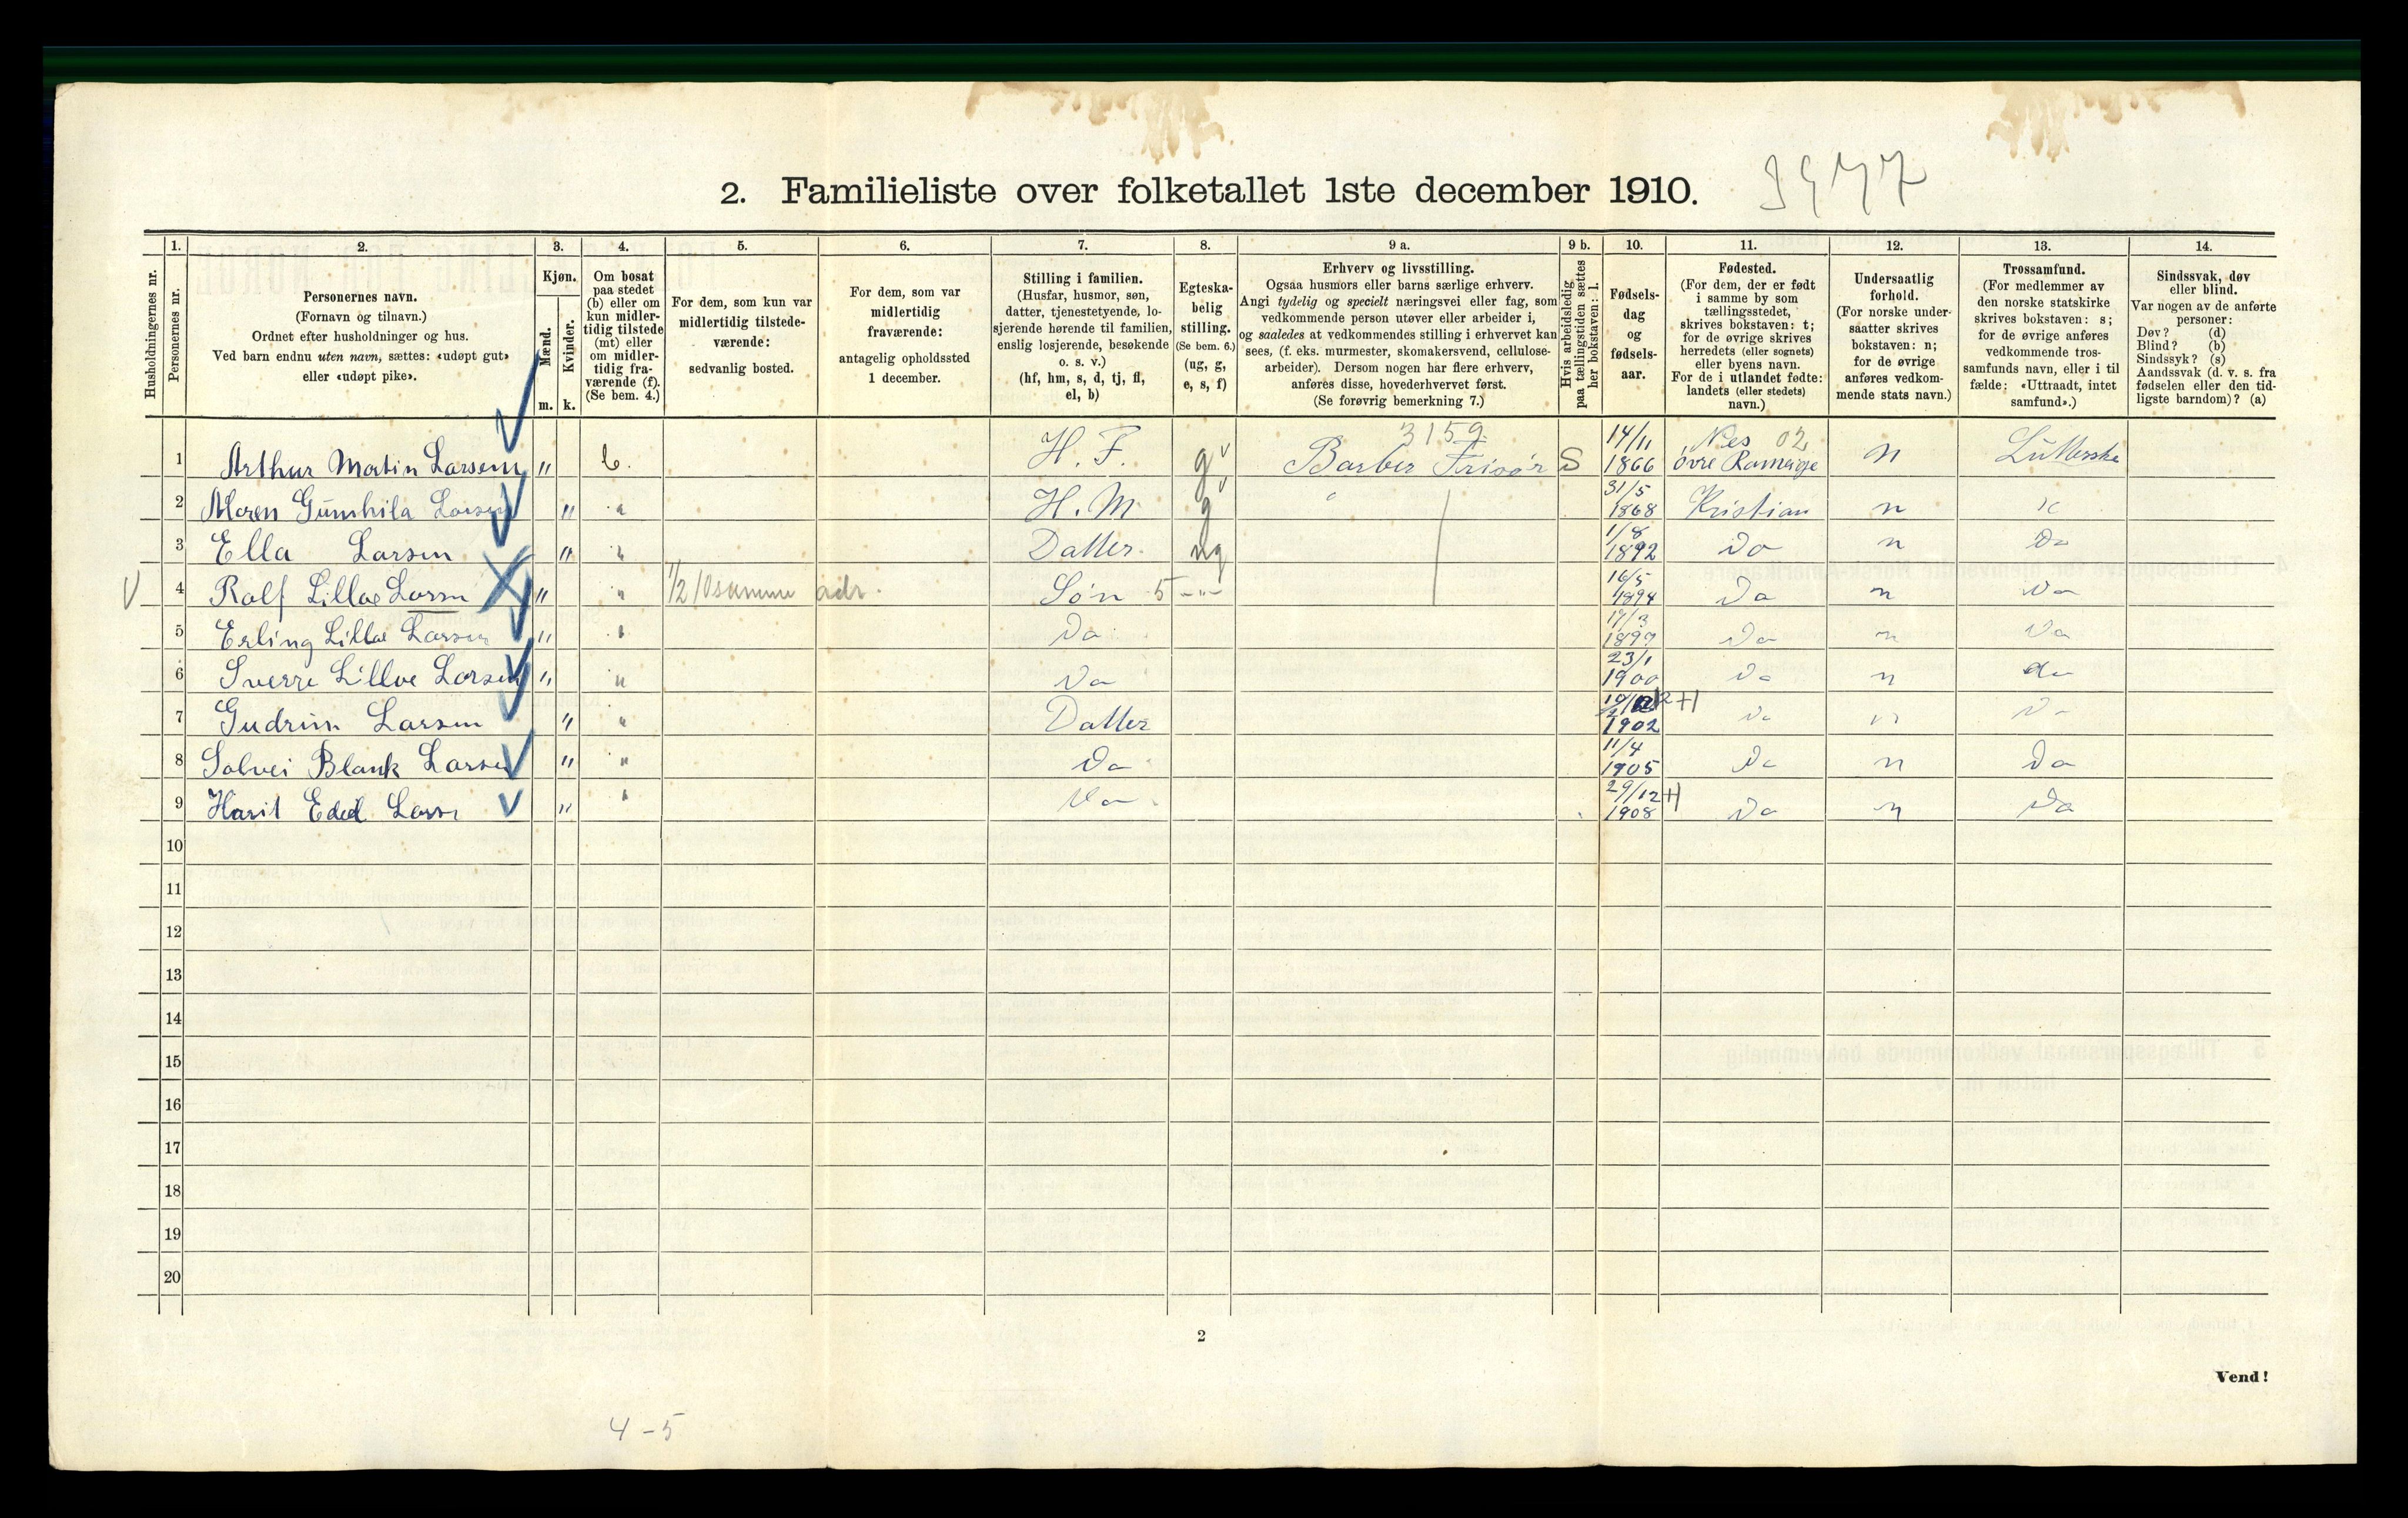 2. Familieliste over folketallet 1ste december 1910.
1. 2. 3. 4. 5. 6. 7. 8. 9 a. 9 b. 10. 11. 12. 13. 14.
Husholdningernes nr.
Personernes nr.
Personernes navn.
(Fornavn og tilnavn.)
Ordnet efter husholdninger og hus.
Ved barn endnu uten navn, sættes: «udøpt gut»
eller «udøpt pike».
Kjøn.
Mænd.
Kvinder.
m. k.
Om bosat
paa stedet
(b) eller om
kun midler-
tidig tilstede
(mt) eller
om midler-
tidig fra-
værende (f).
(Se bem. 4.)
For dem, som kun var
midlertidig tilstede-
værende:
sedvanlig bosted.
For dem, som var
midlertidig
fraværende:
antagelig opholdssted
1 december.
Stilling i familien.
(Husfar, husmor, søn,
datter, tjenestetyende, lo-
sjerende hørende til familien,
enslig losjerende, besøkende
o. s. v.)
(hf, hm, s, d, tj, fl,
el, b)
Egteska-
belig
stilling.
(Se bem. 6.)
(ug, g,
e, s, f)
Erhverv og livsstilling.
Ogsaa husmors eller barns særlige erhverv.
Angi tydelig og specielt næringsvei eller fag, som
vedkommende person utøver eller arbeider i,
og saaledes at vedkommendes stilling i erhvervet kan
sees, (f. eks. murmester, skomakersvend, cellulose-
arbeider). Dersom nogen har flere erhverv,
anføres disse, hovederhvervet først.
(Se forøvrig bemerkning 7.)
Hvis arbeidsledig
paa tællingstiden sættes
her bokstaven: l.
Fødsels-
dag
og
fødsels-
aar.
Fødested.
(For dem, der er født
i samme by som
tællingsstedet,
skrives bokstaven: t;
for de øvrige skrives
herredets (eller sognets)
eller byens navn.
For de i utlandet fødte:
landets (eller stedets)
navn.)
Undersaatlig
forhold.
(For norske under-
saatter skrives
bokstaven: n;
for de øvrige
anføres vedkom-
mende stats navn.)
Trossamfund.
(For medlemmer av
den norske statskirke
skrives bokstaven: s;
for de øvrige anføres
vedkommende tros-
samfunds navn, eller i til
fælde: «Uttraadt, intet
samfund».)
Sindssvak, døv
eller blind.
Var nogen av de anførte
personer:
Døv? (d)
Blind? (b)
Sindssyk? (s)
Aandssvak (d. v. s. fra
fødselen eller den tid-
ligste barndom)? (a)
3159 14/11 Nes 02
1 Arthur Martin Larsen " b. H. F. g Barber Frisør S 1866 øvre Romeige n
31/5
2 Maren Larsen " " H. M. g 1868 Kristian n
1/8
3 Ella Larsen " " Datter ug 1892 Do n Do
16/5
4 Rolf Lilloe Larsen " " adr. Søn 5 -"- 1894 Do n Do
17/3
5 Erling Lilloe Larsen " " Do 1897 Do n Do
23/1
6 Sverre Lilloe Larsen " " Do 1900 Do n do
7 Gudrun Larsen " " Datter 1902 Do n Do
11/4
8 Solvei Blank Larsen " " Do 1905 Do n Do
29/12
9 " " Do 1908 Do n Do
10
11
12
13
14
15
16
17
18
19
20
2
Vend!
4-5